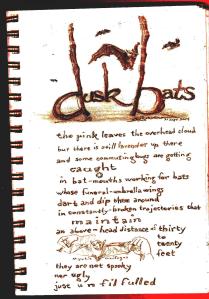 dusk bats
the pink leaves the overhead cloud
but there is still lavender up there
and some commuting bugs are getting
caught
in bat-mouths working for bats
whose funeral-umbrella wings
dart and dip them around
in constantly-broken trajectories that
maintain
an above-head distance of thirty
to
twenty
feet
they are not spooky
nor ugly
just unfilfulled